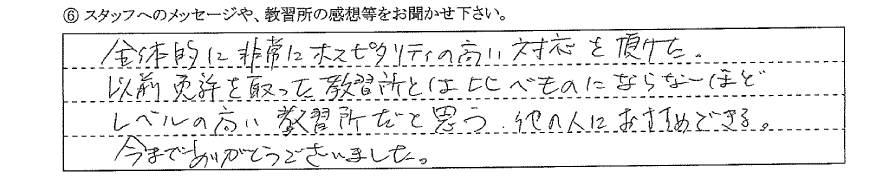 ⑥ スタッフへのメッセージや、教習所の感想等をお聞かせ下さい。
全体的に非常にホスピタリティの高い対応を頂けた。
以前免許を取った教習所とは比べものにならないほど
レベルの高い教習所だと思う。他の人におすすめできる。
今までありがとうございました。